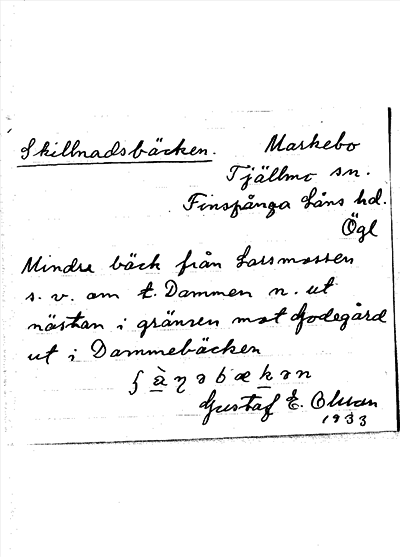 Skillnadsbäcken. Markebo
Tjällmo sn.
Finspånga Läns hd.
Ögl
Mindre bäck från Larsmossen
s. v. om t. Dammen n. ut
nästan i gränsen mot Godegård
ut i Dammebäcken
Gustaf E. Olsson
1933